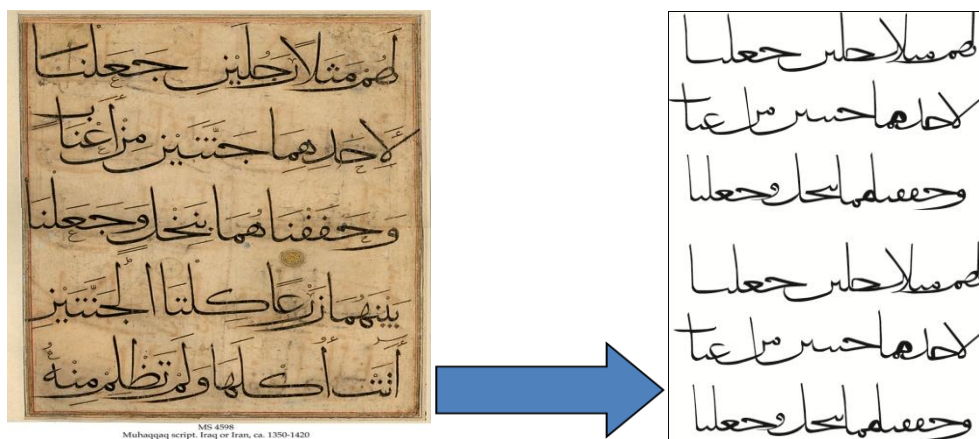 لَهُمْ مَثَلًا رَجُلَيْنِ جَعَلْنَا
لِأَحَدِهِمَا جَنَّتَيْنِ مِنْ أَعْنَابٍ
وَحَفَفْنَاهُمَا بِنَخْلٍ وَجَعَلْنَا
بَيْنَهُمَا زَرْعًا كِلْتَا الْجَنَّتَيْنِ
أَتَتْ أُكُلَهَا وَلَمْ تَظْلِمْ مِنْهُ
MS 4598
Muhaqqaq script. Iraq or Iran, ca. 1350-1420
لهم مٮلا رحلٮں حعلٮا
لاحدهما حٮٮٮں مں اعٮاٮ
وحڡڡٮاهما ٮٮحل وحعلٮا
لهم مٮلا رحلٮں حعلٮا
لاحدهما حٮٮٮں مں اعٮاٮ
وحڡڡٮاهما ٮٮحل وحعلٮا